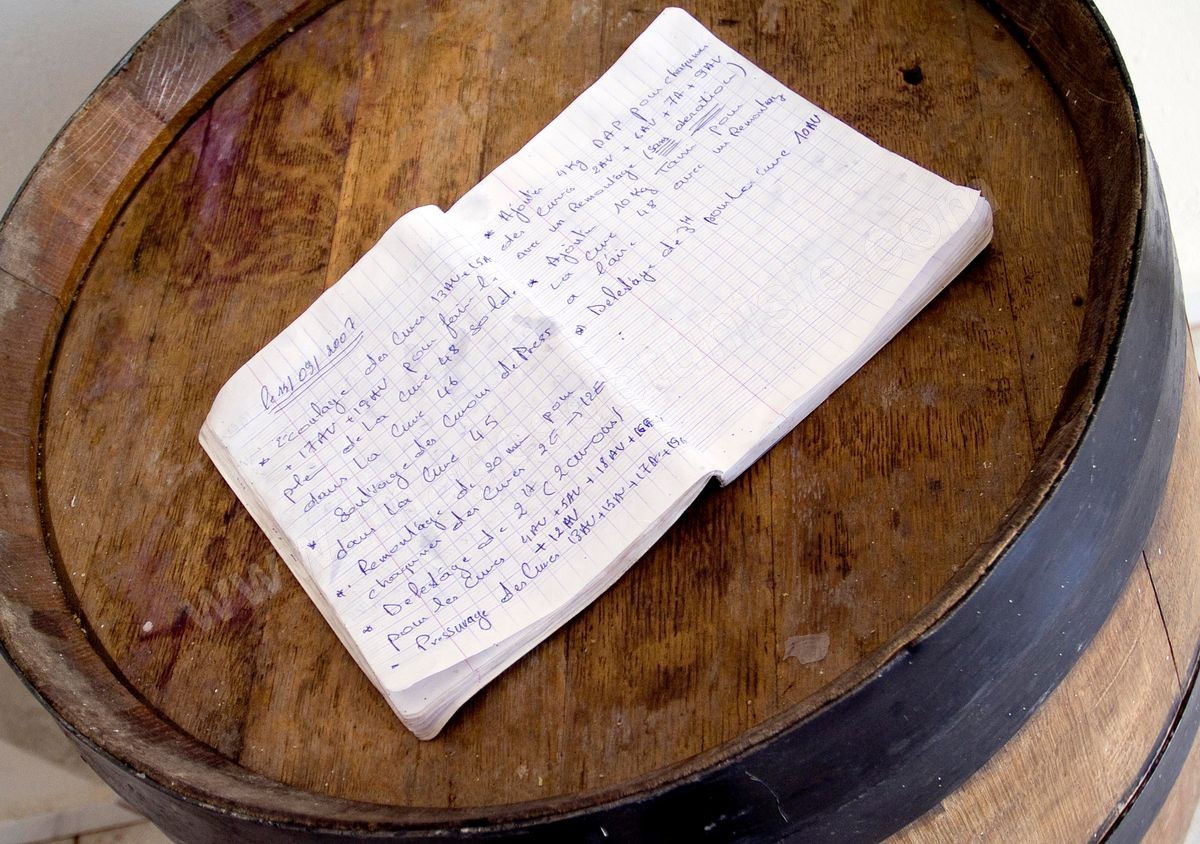 le 11/09/2007
* Ecoulage des Cuves 13AV + 15A
+ 17AV + 19AV pour faire le
plein de La Cuve 48 solde
dans La Cuve 46
* Soutirage des Cuvons de Press
dans La Cuve 45
* Remontage de 20 min pour
chaqunes des Cuves 2E → 12E
* Delestage de 2H (2 cuvons)
pour les Cuves 4AV + 5AV + 18AV + 16A
+ 12AV
- Pressurage des Cuves 13AV + 15AV + 17A + 19
* Ajouter 4Kg DAP pour chaqunes
des Cuves 2AV + 6AV + 7A + 9AV
avec un Remontage (sans aeration)
* Ajouter 10Kg Tanin pour
La Cuve 48 avec un Remontage
a l'air.
* Delestage de 3H pour Les Cuve 10AV